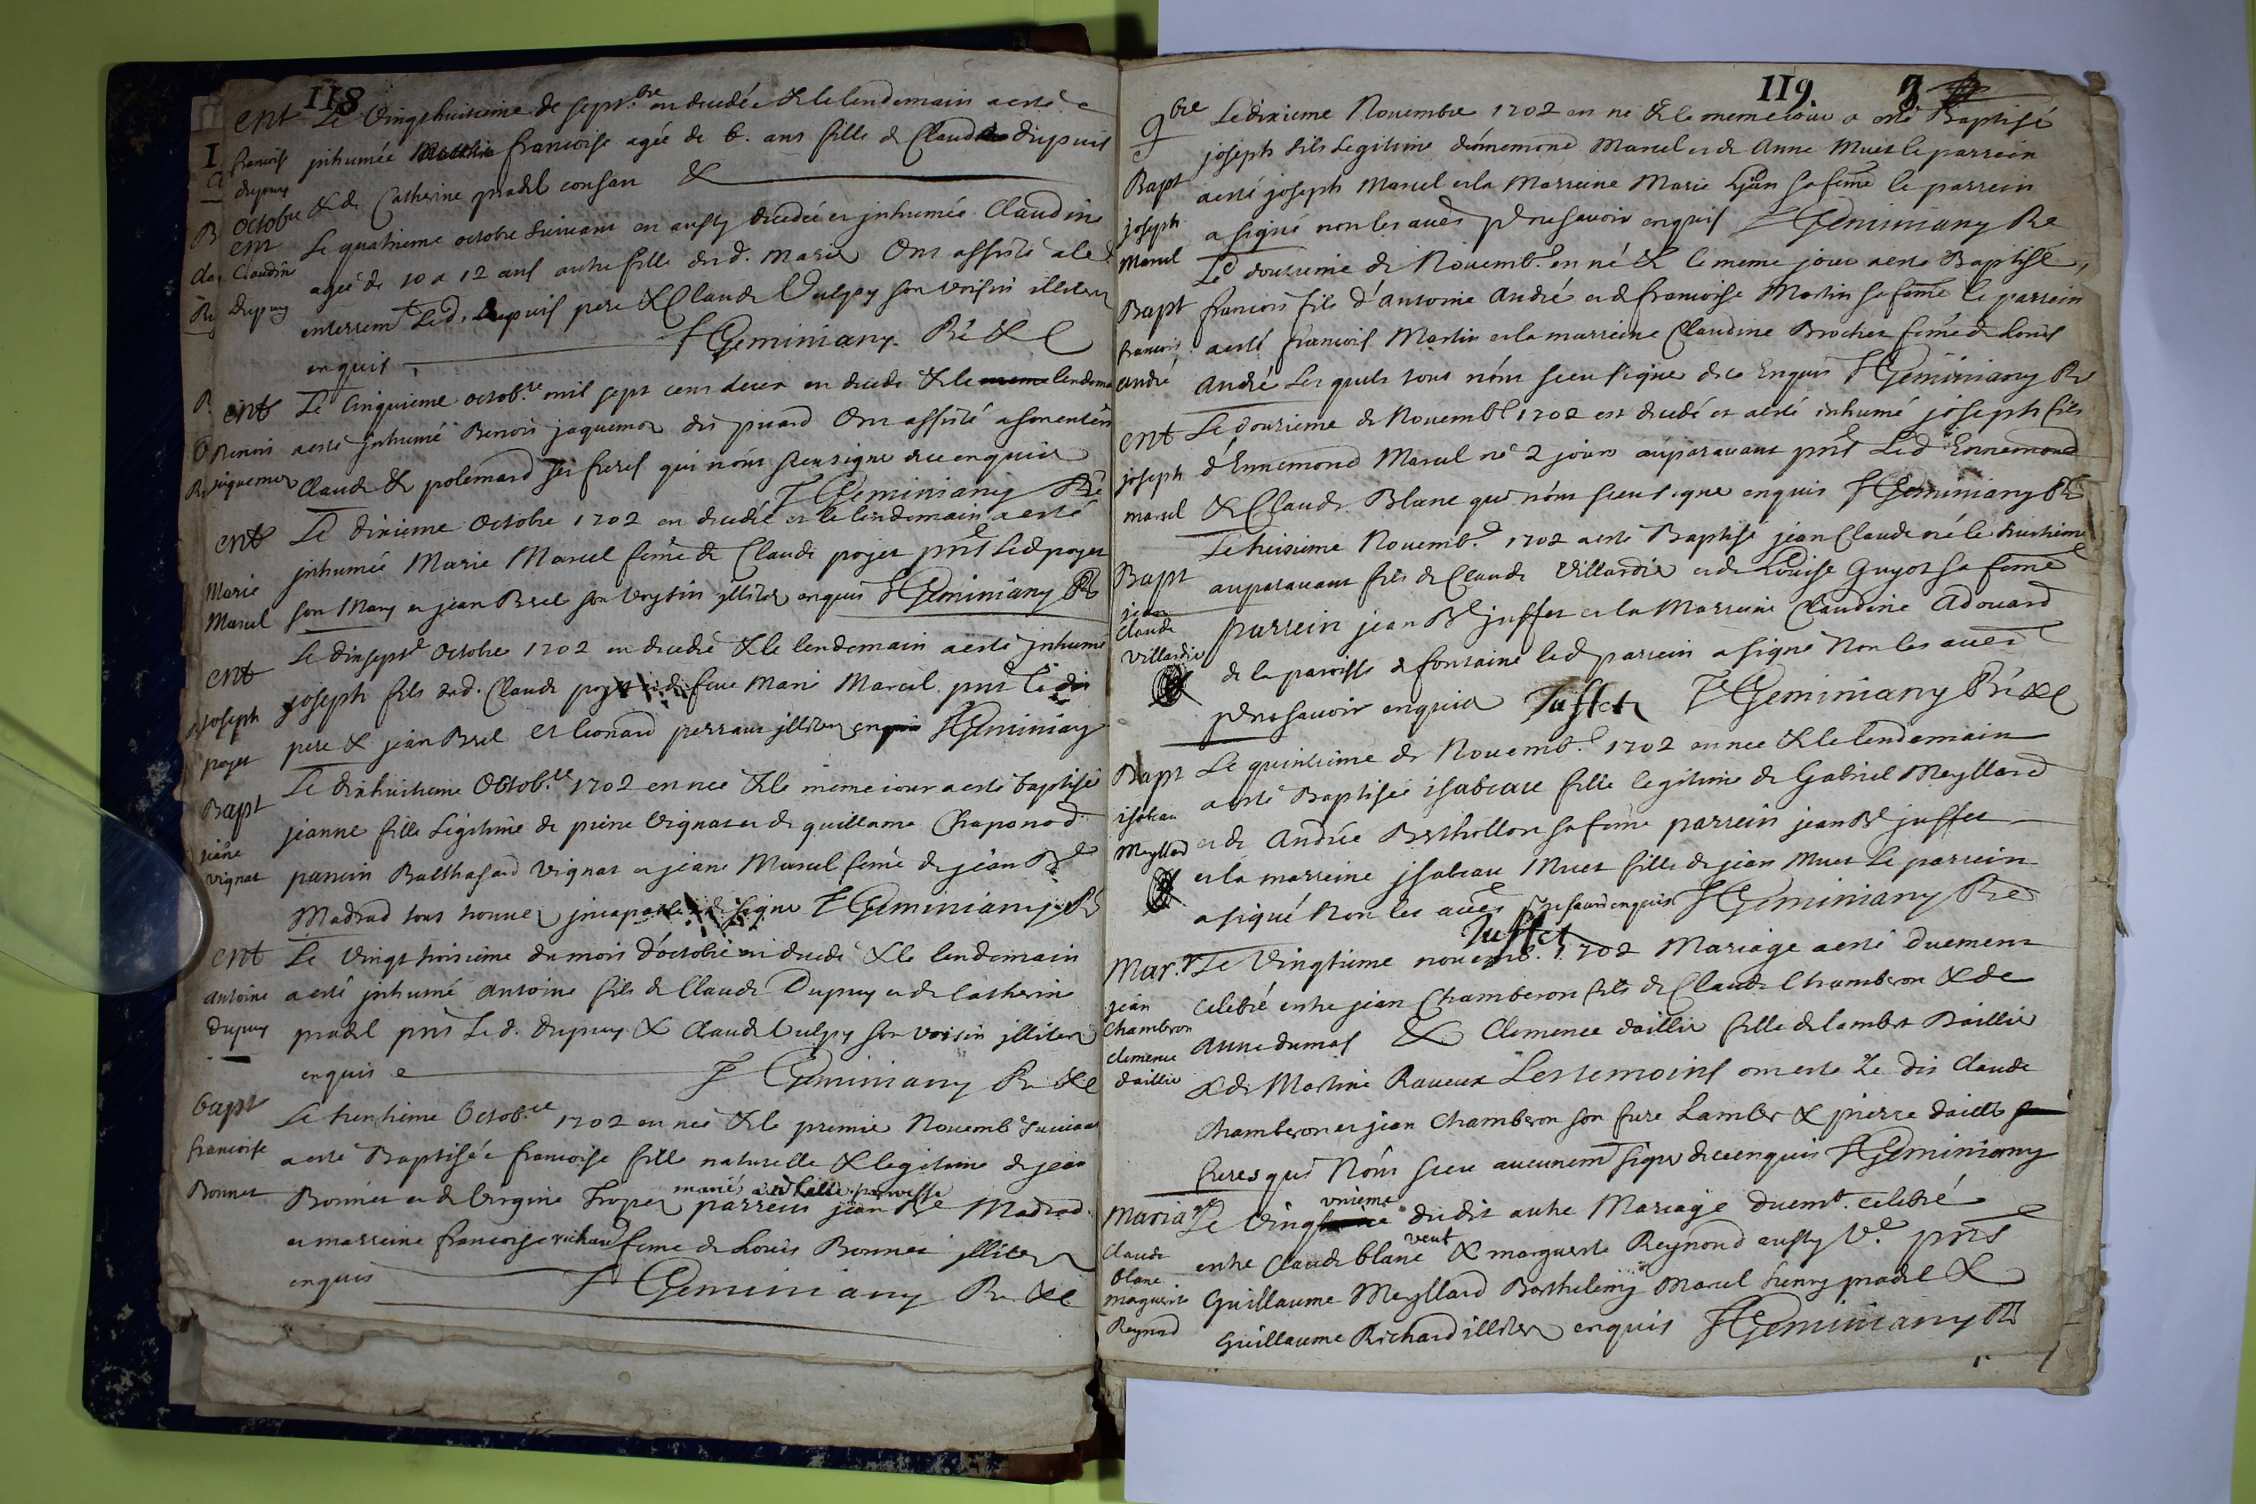 118
ent Le Vingthuitieme de sept.bre en decedée & le lendemain a esté
francoise dupuy
inhumée francoise agée de 6. ans fille de Claude dupuis
& de Catherine pradel consort &
octobre
ent Claudine Dupuy
Le quatrieme octobre suivant en aussy decedée et inhumée Claudine
agée de 10 a 12 ans autre fille desd. mariés Ont assisté aled.
enterremt. Led. Dupuis pere & Claude Vulpey son voisin illiterés
enquis FGeminiany Bré &c
ent Benois jaquemos
Le Cinquieme octob.re mil sept cens deux en decedé & le lendemain
a esté inhumé Benois jaquemos dit picard Ont assisté a son enterrem
Claude & polemard ses freres qui n'ont sceu signer de ce enquis
FGeminiany Bré
ent Marie Marcel
Le dixieme Octobre 1702 en decedée et le lendemain a esté
inhumée Marie Marcel feme de Claude poyet pnt Led poyet
son Mary et jean Brel son voysin illiterés enquis FGeminiany Bré
ent joseph poyet
Le dixseptе Octobre 1702 en decedé & le lendemain a esté inhumé
joseph fils dud. Claude poyet et de feue Marie Marcel. pnt le dit
pere & jean Brel et leonard perraut illiterés enquis FGeminiany
Bapt jeane vignat
Le dixhuitieme Octob.re 1702 en nee & le meme jour a esté baptisée
jeanne fille Legitime de pierre Vignat et de guillame Chaponod
parrein Balthasard Vignat et jeane Marcel feme de jean Bte
Madrad tous trouvés incapables de signer FGeminiany Bré
ent antoine dupuy
Le Vingt troisieme du mois d'octobre en decedé & le lendemain
a esté inhumé Antoine fils de Claude Dupuy et de Catherine
pradel pnts Led. dupuy & Claude Vulpy son voisin illiterés
enquis FGeminiany Br &c
bapt francoise Bonnet
Le trentieme Octob.re 1702 en née & le premier Novemb.re suivant
a esté Baptisée francoise fille naturelle & legitime de jean
Bonnet et de Virgine Troper parrein jean Bte Madrad
et marreine francoise richard feme de Louis Bonnet illiterés
enquis FGeminiany Br. &c
119. 3
9bre
Bapt joseph Marcel
Le dixieme Novembre 1702 en né & le meme jour a esté Baptisé
joseph fils Legitime d'enemond Marcel et de Anne Muet le parrein
a esté joseph Marcel et la Marreine Marie Lyan sa feme le parrein
a signé non les autres pr ne savoir enquis FGeminiany Bre
Bapt francois andré
Le douzieme de Novemb.e en né & le meme jour a esté Baptisé
francois fils d'Antoine André et de francoise Martin sa feme le parrein
a esté francois Martin et la marreine Claudine Brochet feme de Louis
André Lesquels tous n'ont sceu signer de ce Enquis FGeminiany Br
ent joseph marcel
Le douzieme de Novemb.e 1702 est decedé et a esté inhumé joseph fils
d'Ennemond Marcel né 2 jours auparavant pnts Led Ennemond
& Claude Blanc qui n'ont sceu signer enquis FGeminiany Bré
Bapt jean Claude Villardie
Le treisieme Novemb.e 1702 a esté Baptisé jean Claude né le huitieme
auparavant fils de Claude Villardie et de Louise Guyot sa feme
parrein jean Bte juffet et la Marreine Claudine Adouard
de la paroisse de fontaine led parrein a signé Non les autres
pr ne savoir enquis Juffet FGeminiany Bré &c
Bapt isabeau Meyllard
Le quinzieme de Novemb.e 1702 en nee & le lendemain
a esté Baptisée isabeau fille legitime de Gabriel Meyllard
et de Andrée Berthollon sa feme parrein jean Bte juffet
et la marreine jsabeau Muet fille de jean Muet Le parrein
a signé Non les autres pr ne savoir enquis FGeminiany Bre
Juffet
Mar.e jean Chambron clemence daillie
Le Vingtieme novemb.e 1702 Mariage a esté duement
celebré entre jean Chamberon fils de Claude Chamberon & de
Anne dumas & Clemence daillie fille de lambert Daillie
& de Martine Raveux Les temoins ont esté Le dit Claude
Chamberon et jean Chamberon son frere Lambert & pierre daillie
freres qui N'ont sceu aucunemt signer de ce enquis FGeminiany
Mariage Claude blanc marguerite Reynod
Le Vingt unieme dudit autre Mariage duemt. celebré
entre Claude blanc veuf & marguerite Reynond aussy Ve. pnts
Guillaume Meyllard Barthelemy Marcel henry pradel &
Guillaume Richard illiterés enquis FGeminiany Bré